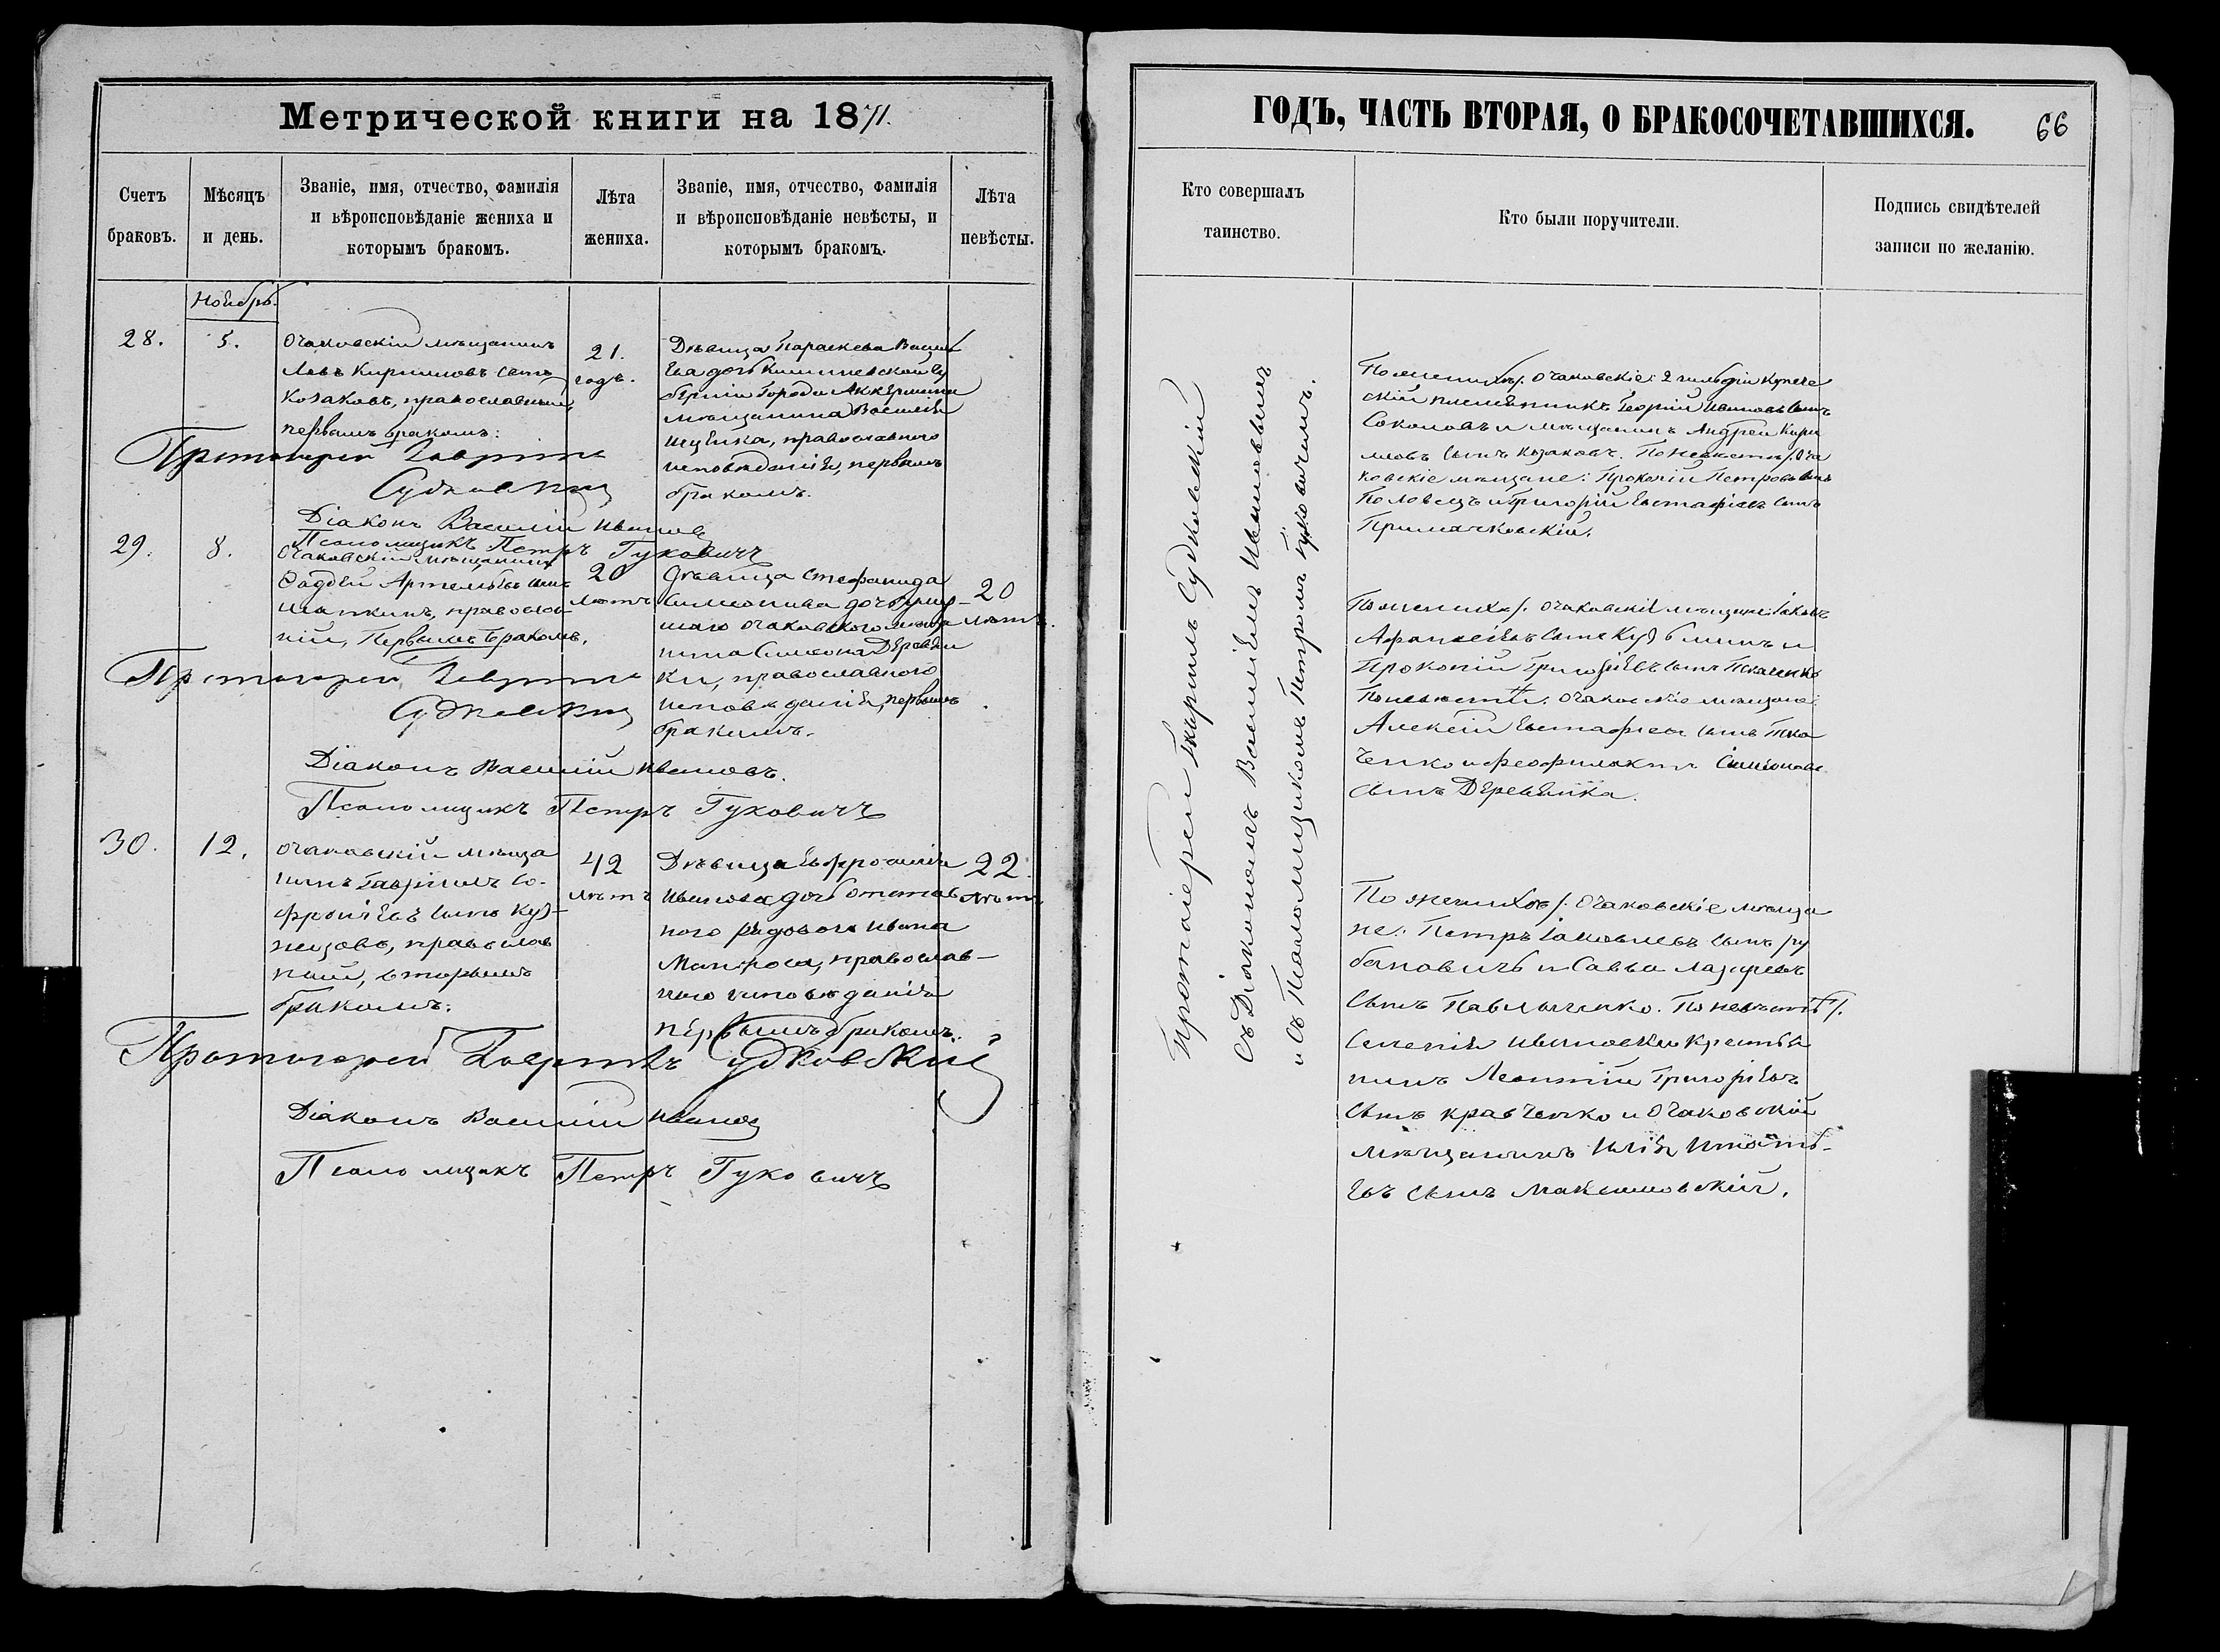 Метрической книги на 1871.
Счетъ браковъ.
Мѣсяцъ и день.
Званіе, имя, отчество, фамилія
и вѣроисповѣданіе жениха и
которымъ бракомъ.
Лѣта жениха.
Званіе, имя, отчество, фамилія
и вѣроисповѣданіе невѣсты, и
которымъ бракомъ.
Лѣта невѣсты.
Ноябрь.
28.
5.
Очаковскій мѣщанинъ
Левъ Кирилловъ сынъ
Козаковъ, православный,
первымъ бракомъ:
21.
годъ.
Дѣвица Параскева Васил
ева дочь Кишиневской Гу
берніи города Аккермана
мѣщанина Василія
православнаго
исповѣданія, первымъ
бракомъ.
Протоіерей Гавріилъ
Судковскій
Діаконъ Василій Ивановъ
Псаломщикъ Петръ Гуковичъ
29.
8.
Очаковскій мѣщанинъ
Фаддей Артемьевъ сынъ
православ
ній, Первымъ бракомъ.
20
лѣтъ
Дѣвица Стефанида
Симеонова дочь умер-
шаго очаковского мѣща
нина Симеона Деревян
ки, православного
исповѣданія, первымъ
бракомъ.
20
лѣтъ.
Протоіерей Гавріилъ
Судковскій
Діаконъ Василій Ивановъ.
Псаломщикъ Петръ Гуковичъ
30.
12.
Очаковскій мѣща
нинъ Гавріилъ Со-
фроніевъ сынъ Куз-
нецовъ, православ
ный, вторымъ
бракомъ:
42
лѣтъ
Дѣвица Евфросинія
Иванова дочь отстав
ного рядового Ивана
Матроса, православ-
ного исповѣданія
первымъ бракомъ.
22.
лѣтъ
Протоіерей Гавріилъ Судковскій
Діаконъ Василій Ивановъ
Псаломщикъ Петръ Гуковичъ
ГОДЪ, ЧАСТЬ ВТОРАЯ, О БРАКОСОЧЕТАВШИХСЯ.
66
Кто совершалъ
таинство.
Кто были поручители.
Подпись свидѣтелей
записи по желанію.
Протоіерей Гавріилъ Судковскій
съ Діакономъ Василіемъ Ивановымъ
и съ Псаломщикомъ Петромъ Гуковичемъ.
По женихѣ/: Очаковскіе: 2 гильдіи купече
скій племянникъ Георгій Ивановъ сынъ
Соколовъ и мѣщанинъ Андрей Кири
ловъ сынъ Козаковъ. По невѣстѣ/: Оча
ковскіе мѣщане: Прокопій Петровъ сынъ
Половецъ и Григорій Евстафіевъ сынъ
Примачковскій.
По женихѣ/: Очаковскіе мѣщане: Іаковъ
Афанасіевъ сынъ Кузьминъ и
Прокопій Григоріевъ сынъ Ткаченко
По невѣстѣ: Очаковскіе мѣщане:
Алексій Евстафіевъ сынъ Тка
ченко и Феофилактъ Симеоновъ
сынъ Деревянка.
По женихѣ/: Очаковскіе мѣща
не: Петръ Іаковлевъ сынъ Ру
бановичъ и Савва Лазаревъ
сынъ Павлыченко. По невѣстѣ/:
Селенія Ивановки крестья
нинъ Леонтій Григоріевъ
сынъ Кравченко и Очаковскій
мѣщанинъ Илія Игнать-
евъ сынъ Максимовскій.